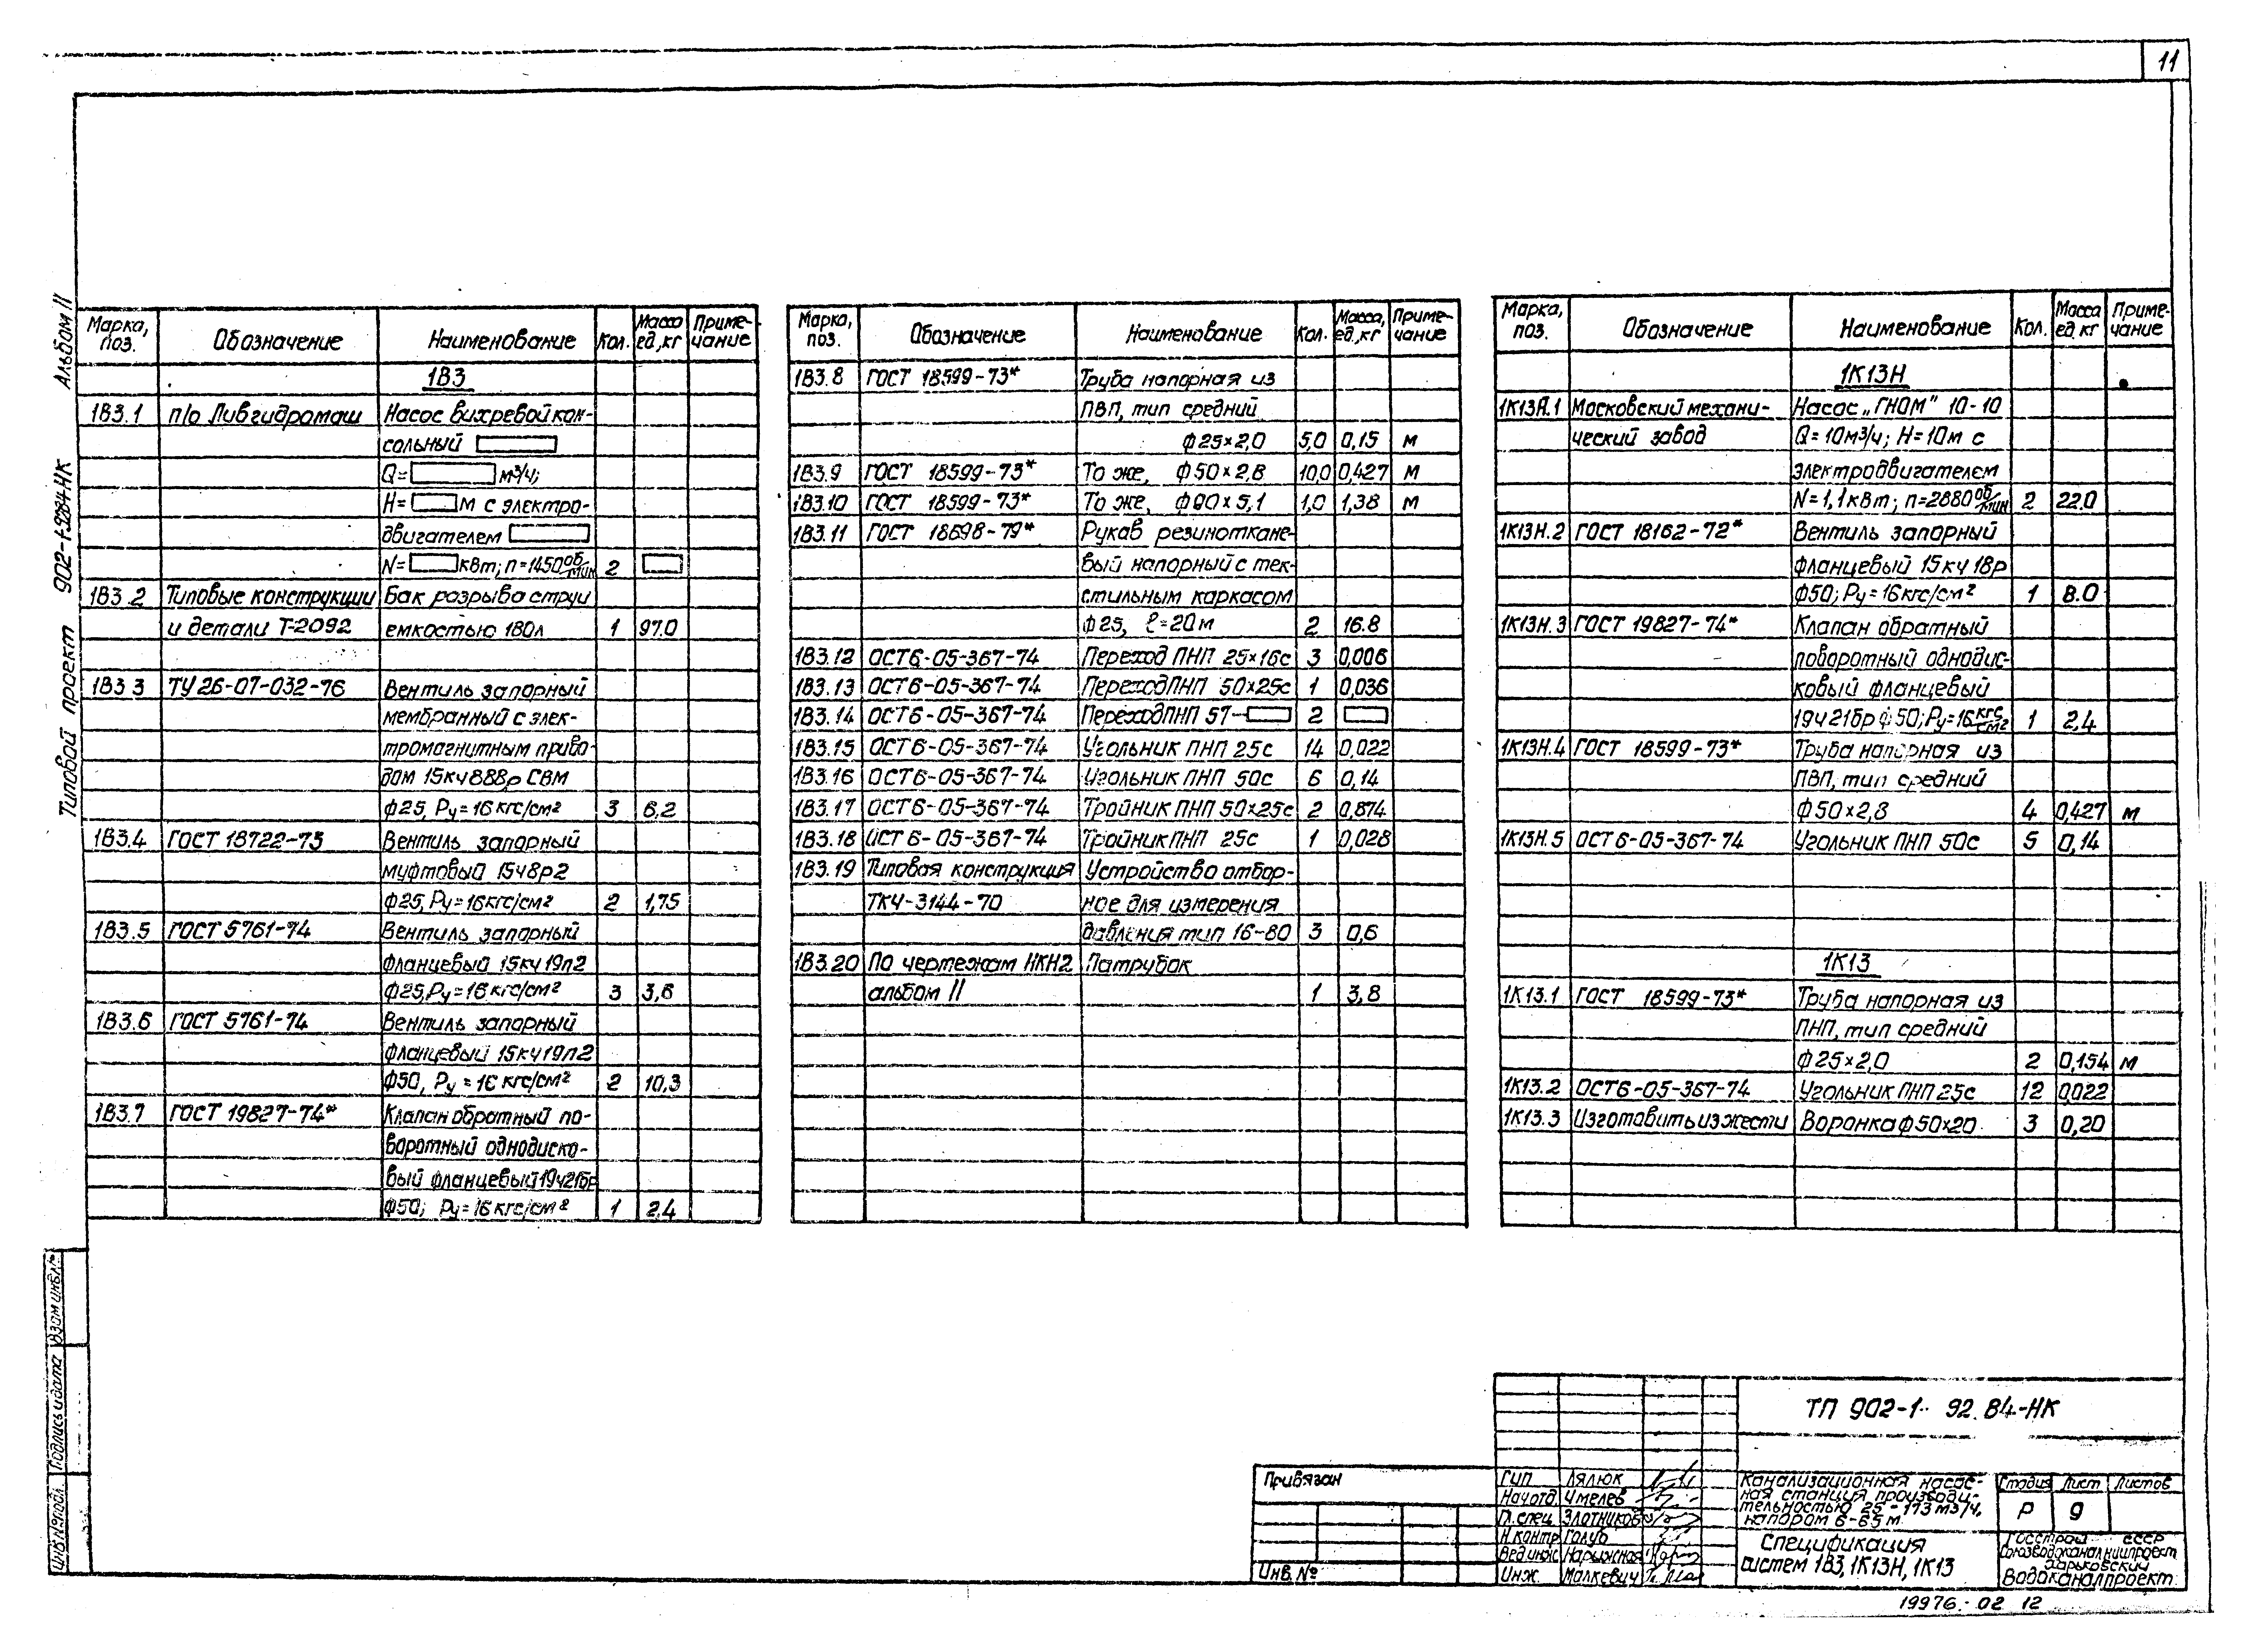 11
Альбом II
Типовой проект 902-1-92.84-НК
Марка, поз. Обозначение Наименование Кол. Масса ед., кг Приме-чание
1В3
1В3.1 п/о Ливгидромаш Насос вихревой кон-
сольный
Q= м³/ч;
H= м с электро-
двигателем
N= кВт; n=1450 об/мин 2
1В3.2 Типовые конструкции Бак разрыва струи
и детали Т-2092 емкостью 180л 1 97.0
1В3.3 ТУ 26-07-032-76 Вентиль запорный
мембранный с элек-
тромагнитным приво-
дом 15кч888р СВМ
ф25, Ру=16 кгс/см² 3 6,2
1В3.4 ГОСТ 18722-73 Вентиль запорный
муфтовый 15ч8р2
ф25, Ру=16кгс/см² 2 1,75
1В3.5 ГОСТ 5761-74 Вентиль запорный
фланцевый 15кч19п2
ф25, Ру=16 кгс/см² 3 3,6
1В3.6 ГОСТ 5761-74 Вентиль запорный
фланцевый 15кч19п2
ф50, Ру=16 кгс/см² 2 10,3
1В3.7 ГОСТ 19827-74* Клапан обратный по-
воротный однодиско-
вый фланцевый 19ч21бр
ф50; Ру=16кгс/см² 1 2,4
Марка, поз. Обозначение Наименование Кол. Масса, ед., кг Приме-чание
1В3.8 ГОСТ 18599-73* Труба напорная из
ПВП, тип средний
ф25×2,0 5,0 0,15 м
1В3.9 ГОСТ 18599-73* То же, ф50×2,8 10,0 0,427 м
1В3.10 ГОСТ 18599-73* То же, ф90×5,1 1,0 1,38 м
1В3.11 ГОСТ 18698-79* Рукав резиноткане-
вый напорный с тек-
стильным каркасом
ф25, ℓ=20м 2 16.8
1В3.12 ОСТ6-05-367-74 Переход ПНП 25×16с 3 0,006
1В3.13 ОСТ6-05-367-74 Переход ПНП 50×25с 1 0,036
1В3.14 ОСТ6-05-367-74 Переход ПНП 57- 2
1В3.15 ОСТ6-05-367-74 Угольник ПНП 25с 14 0,022
1В3.16 ОСТ6-05-367-74 Угольник ПНП 50с 6 0,14
1В3.17 ОСТ6-05-367-74 Тройник ПНП 50×25с 2 0,874
1В3.18 ОСТ6-05-367-74 Тройник ПНП 25с 1 0,028
1В3.19 Типовая конструкция Устройство отбор-
ТКЧ-3144-70 ное для измерения
давления тип 16-80 3 0,6
1В3.20 По чертежам НКН2 Патрубок
альбом II 1 3,8
Марка, поз. Обозначение Наименование Кол. Масса ед, кг Приме-чание
1К13Н
1К13Н.1 Московский механи- Насос „ГНОМ" 10-10
ческий завод Q=10м³/ч; H=10м с
электродвигателем
N=1,1кВт; n=2880 об/мин 2 22.0
1К13Н.2 ГОСТ 18162-72* Вентиль запорный
фланцевый 15кч18р
ф50; Ру=16кгс/см² 1 8.0
1К13Н.3 ГОСТ 19827-74* Клапан обратный
поворотный однодис-
ковый фланцевый
19ч21бр ф50; Ру=16 кгс/см² 1 2,4
1К13Н.4 ГОСТ 18599-73* Труба напорная из
ПВП, тип средний
ф50×2,8 4 0,427 м
1К13Н.5 ОСТ6-05-367-74 Угольник ПНП 50с 5 0,14
1К13
1К13.1 ГОСТ 18599-73* Труба напорная из
ПНП, тип средний
ф25×2,0 2 0,154 м
1К13.2 ОСТ6-05-367-74 Угольник ПНП 25с 12 0,022
1К13.3 Изготовить из жести Воронка ф50×20 3 0,20
Взам инв.№
Подпись и дата
Инв.№ подл.
Привязан
Инв. №
Гип Лялюк
Нач отд. Чмелев
Гл. спец. Злотников
Н.контр Голуб
Вед инж Нарыжная
Инж. Малкевич
ТП 902-1- 92.84-НК
Канализационная насос-
ная станция производи-
тельностью 25-173 м3/ч,
напором 6-65м
Спецификация
систем 1В3, 1К13Н, 1К13
Стадия Лист Листов
Р 9
Госстрой СССР
Союзводоканалниипроект
Харьковский
Водоканалпроект
19976-02 12